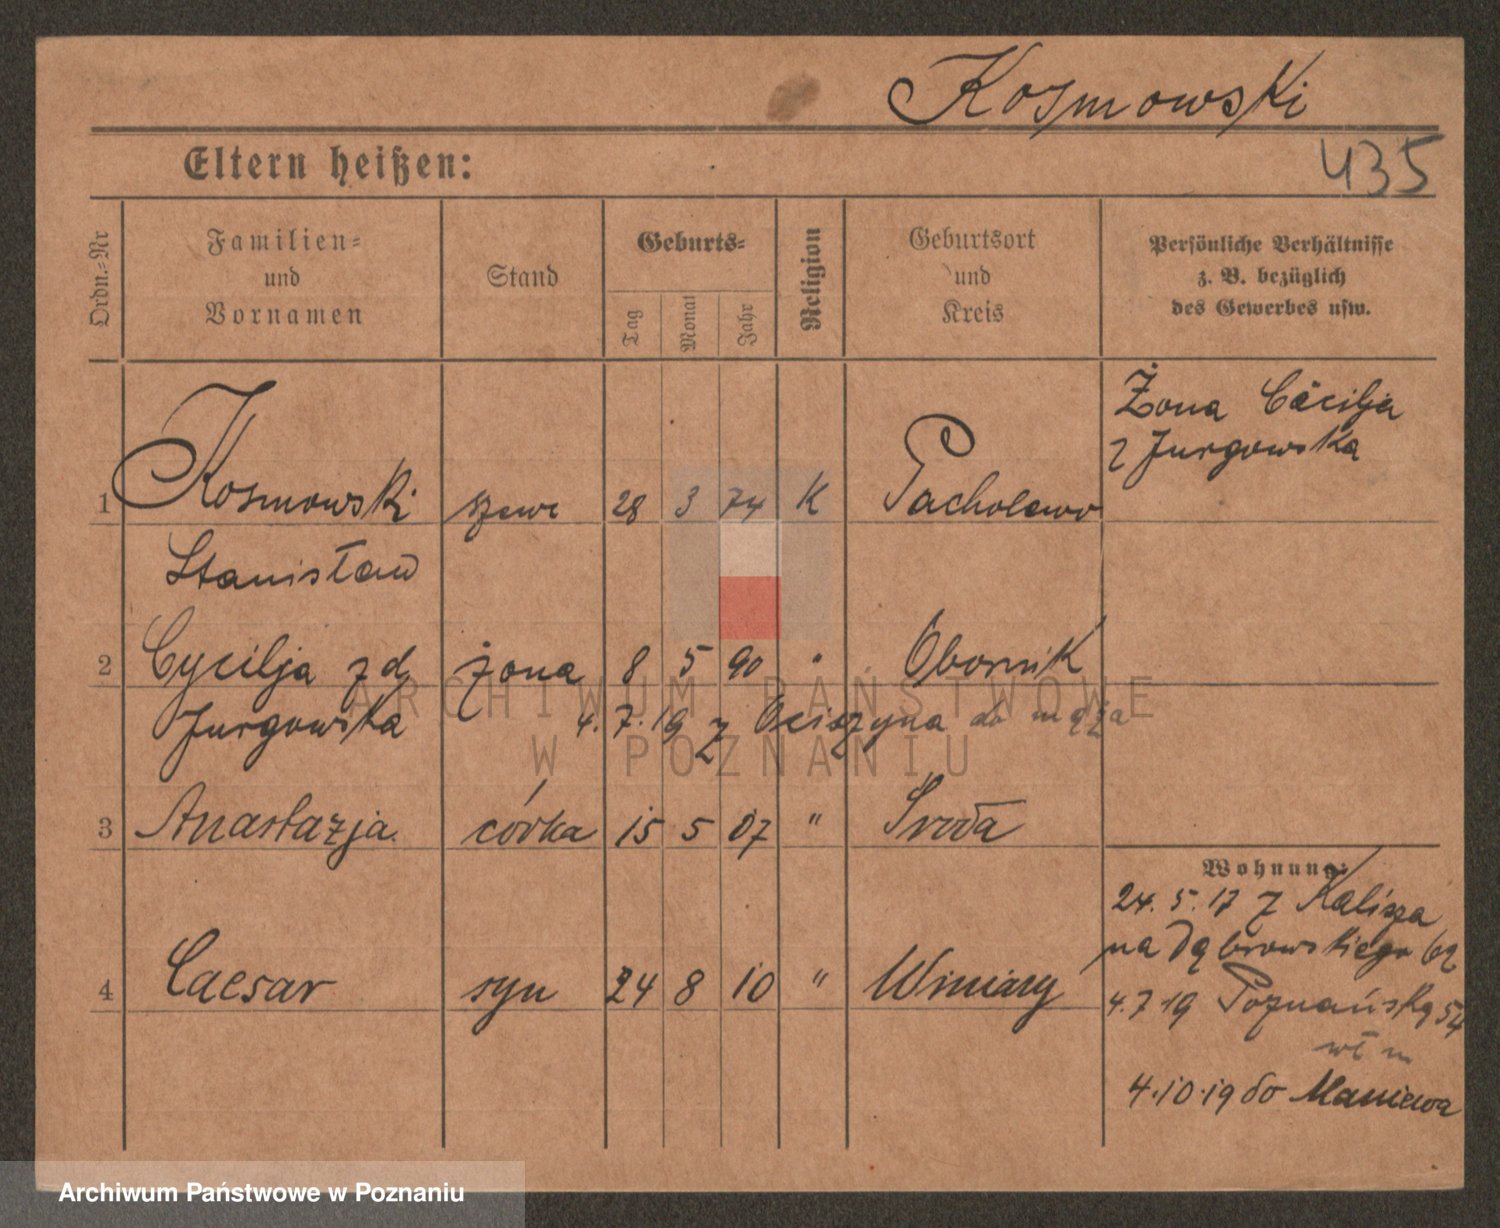 Kosmowski
Eltern heißen:
435
Ordn.-Nr
Familien-
und
Vornamen
Stand
Geburts-
Tag
Monat
Jahr
Religion
Geburtsort
und
Kreis
Persönliche Verhältnisse
z. B. bezüglich
des Gewerbes usw.
Żona Cäcilja
z Jurgowska
1 Kosmowski szewc 28 3 74 K Pacholewo
Stanisław
2 Cycilja z d. żona 8 5 90 " Obornik
Jurgowska 4.7.19 z Ociązyna do męża
3 Anastazja córka 15 5 07 " Środa
Wohnung:
24.5.17 z Kalisza
na Dąbrowskiego
4 Caesar syn 24 8 10 " Winiary
4.7 19 Poznańską 54
wł m
4.10.19 do Maniewa
ARCHIWUM PAŃSTWOWE
W POZNANIU
Archiwum Państwowe w Poznaniu